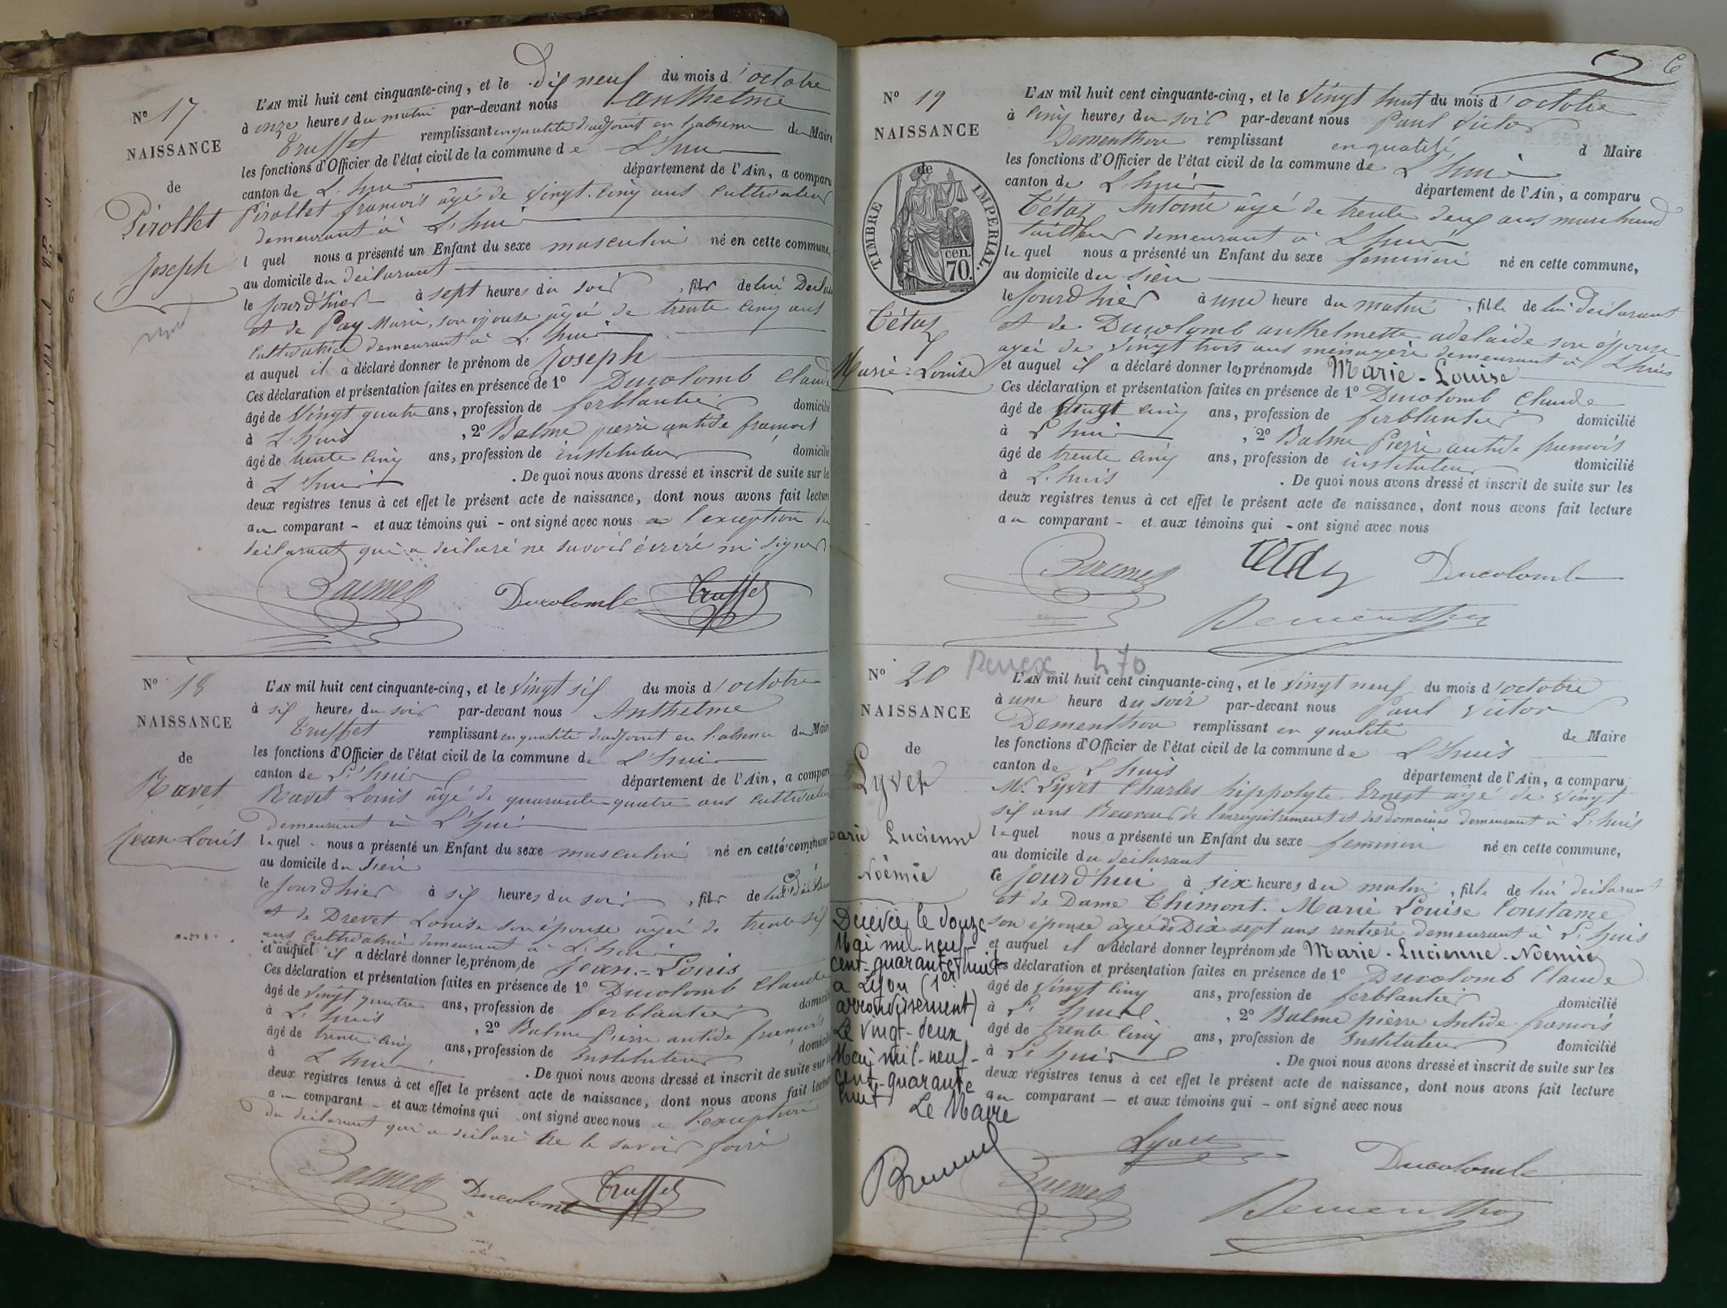 N° 17
NAISSANCE
de
Pirollet
Joseph
L'AN mil huit cent cinquante-cinq, et le dix neuf du mois d'octobre
à onze heures du matin par-devant nous anthelme
Truffet remplissant en qualité d'adjoint en l'absence du Maire
les fonctions d'Officier de l'état civil de la commune de L'huis
canton de L'huis département de l'Ain, a comparu
Pirollet francois âgé de vingt-cinq ans cultivateur
demeurant à L'huis
l quel nous a présenté un Enfant du sexe masculin né en cette commune,
au domicile du déclarant
le jourd'hier à sept heures du soir, fils de lui Déclarant
et de Pay Marie, son épouse âgée de trente cinq ans
cultivatrice demeurant à L'huis
et auquel il a déclaré donner le prénom de Joseph
Ces déclaration et présentation faites en présence de 1° Ducolomb Claude
âgé de vingt quatre ans, profession de ferblantier domicilié
à L'huis, 2° Balme pierre antide francois
âgé de trente cinq ans, profession de instituteur domicilié
à L'huis. De quoi nous avons dressé et inscrit de suite sur les
deux registres tenus à cet effet le présent acte de naissance, dont nous avons fait lecture
au comparant - et aux témoins qui - ont signé avec nous a l'exception du
déclarant qui a déclaré ne savoir écrire ni signer
Ducolomb Truffet
N° 18
NAISSANCE
de
Ravet
Jean-Louis
L'AN mil huit cent cinquante-cinq, et le vingt six du mois d'octobre
à six heures du soir par-devant nous Anthelme
Truffet remplissant en qualité d'adjoint en l'absence du Maire
les fonctions d'Officier de l'état civil de la commune de L'huis
canton de L'huis département de l'Ain, a comparu
Ravet Louis âgé de quarante-quatre ans cultivateur
demeurant à L'huis
lequel nous a présenté un Enfant du sexe masculin né en cette commune
au domicile du sien
le jourd'hier à six heures du soir, fils de lui Déclarant
et de Drevet Louise son épouse âgée de trente six
ans cultivatrice demeurant à L'huis
et auquel il a déclaré donner le prénom de Jean-Louis
Ces déclaration et présentation faites en présence de 1° Ducolomb Claude
âgé de vingt quatre ans, profession de ferblantier domicilié
à L'huis, 2° Balme Pierre antide francois
âgé de trente cinq ans, profession de Instituteur domicilié
à L'huis. De quoi nous avons dressé et inscrit de suite sur les
deux registres tenus à cet effet le présent acte de naissance, dont nous avons fait lecture
a comparant - et aux témoins qui ont signé avec nous a l'exception
du déclarant qui a déclaré ne le savoir faire
Ducolomb Truffet
6
N° 19
NAISSANCE
de
TIMBRE IMPERIAL.
70. cen.
Tétaz
Marie-Louise
L'AN mil huit cent cinquante-cinq, et le vingt huit du mois d'octobre
à cinq heures du soir par-devant nous Paul victor
Dementhon remplissant en qualité d Maire
les fonctions d'Officier de l'état civil de la commune de L'huis
canton de L'huis département de l'Ain, a comparu
Tétaz Antoine âgé de trente deux ans marchand
tailleur demeurant à L'huis
lequel nous a présenté un Enfant du sexe feminin né en cette commune,
au domicile du sien
le jourd'hier à une heure du matin, fille de lui déclarant
et de Ducolomb anthelmette adelaide son épouse
agée de vingt trois ans ménagère demeurant à L'huis
et auquel il a déclaré donner les prénoms de Marie-Louise
Ces déclaration et présentation faites en présence de 1° Ducolomb Claude
âgé de vingt cinq ans, profession de ferblantier domicilié
à L'huis, 2° Balme Pierre antide francois
âgé de trente cinq ans, profession de instituteur domicilié
à L'huis. De quoi nous avons dressé et inscrit de suite sur les
deux registres tenus à cet effet le présent acte de naissance, dont nous avons fait lecture
au comparant - et aux témoins qui - ont signé avec nous
Ducolomb
Dementhon
470
N° 20
NAISSANCE
de
Lyvet
Marie Lucienne
Noémie
Décédée le douze
Mai mil-neuf
cent-quarante-huit
à Lyon (1er
arrondissement)
Le vingt-deux
Mai mil-neuf-
cent-quarante
huit
Le Maire
L'AN mil huit cent cinquante-cinq, et le vingt neuf du mois d'octobre
à une heure du soir par-devant nous Paul victor
Dementhon remplissant en qualité de Maire
les fonctions d'Officier de l'état civil de la commune de L'huis
canton de L'huis département de l'Ain, a comparu
Mr. Lyvet Charles hippolyte Ernest âgé de vingt
six ans Receveur de l'enregistrement et des domaines demeurant à L'huis
lequel nous a présenté un Enfant du sexe feminin né en cette commune,
au domicile du déclarant
ce jourd'hui à six heures du matin, fille de lui déclarant
et de Dame Chimont Marie Louise Constance
son épouse agée de Dix sept ans rentière demeurant à L'huis
et auquel il a déclaré donner les prénoms de Marie-Lucienne-Noémie
Ces déclaration et présentation faites en présence de 1° Ducolomb Claude
âgé de vingt cinq ans, profession de ferblantier domicilié
à L'huis, 2° Balme pierre Antide francois
âgé de trente cinq ans, profession de Instituteur domicilié
à L'huis. De quoi nous avons dressé et inscrit de suite sur les
deux registres tenus à cet effet le présent acte de naissance, dont nous avons fait lecture
au comparant - et aux témoins qui - ont signé avec nous
Ducolomb
Dementhon